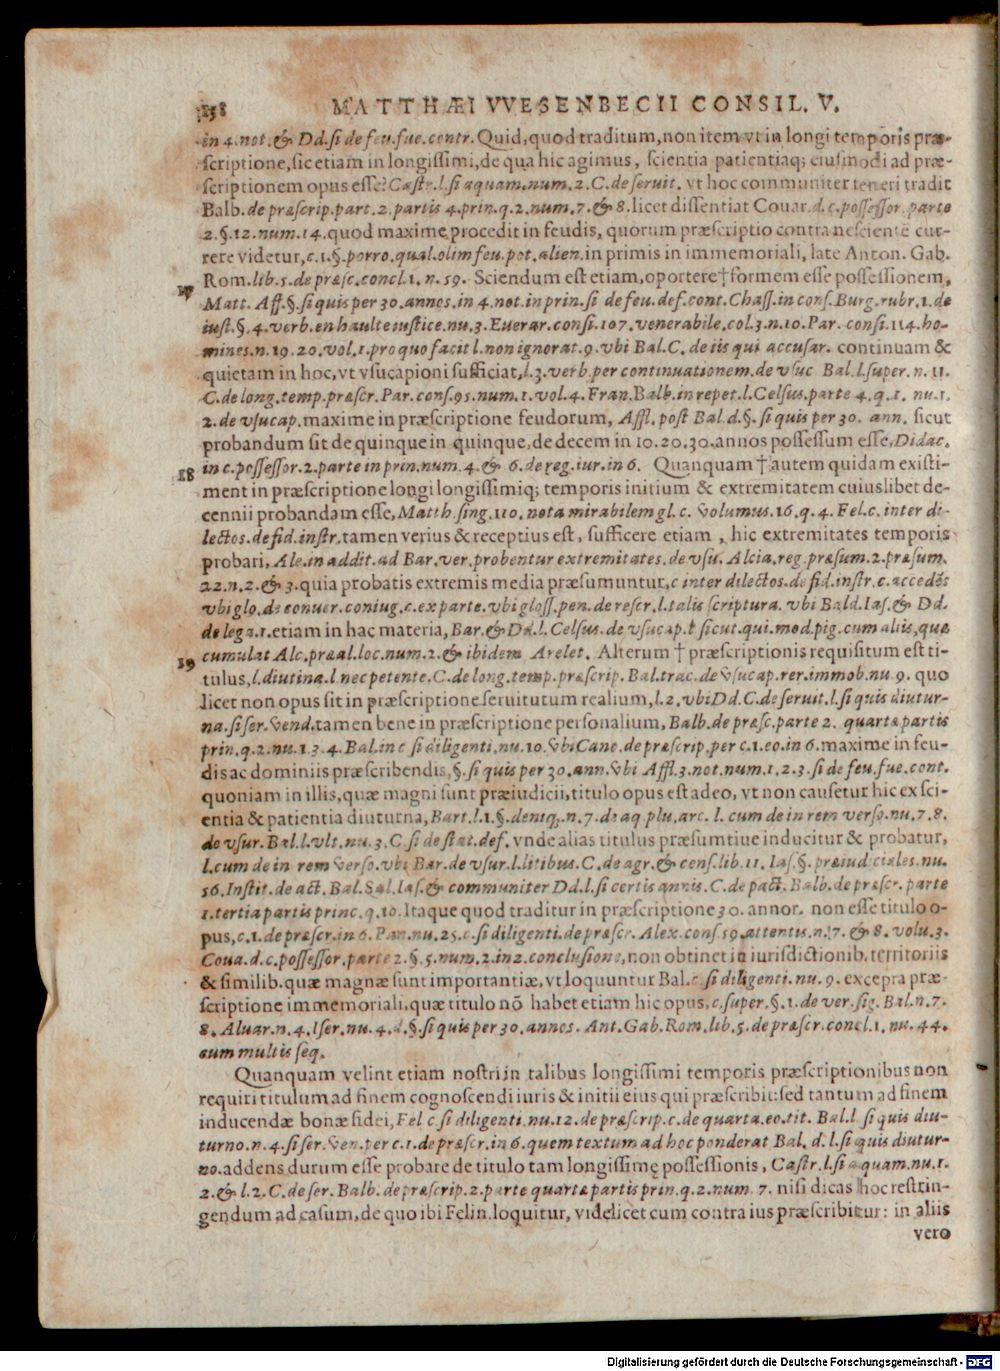 158 MATTHÆI VVESENBECII CONSIL. V.
in 4. not. & Dd. si de feu. fue. contr. Quid, quod traditum, non item vt in longi temporis præ-
scriptione, sic etiam in longissimi, de qua hic agimus, scientia patientiaq; eiusmodi ad præ-
scriptionem opus esse? Castr. l. si aquam. num. 2. C. de seruit. vt hoc communiter teneri tradit
Balb. de præscrip. part. 2. partis 4. prin. q. 2. num. 7. & 8. licet dissentiat Couar. d. c. possessor. parte
2. §. 12. num. 14. quod maxime procedit in feudis, quorum præscriptio contra nescientē cur-
rere videtur, c. 1. §. porro. qual. olim feu. pot. alien. in primis in immemoriali, late Anton. Gab.
Rom. lib. 5. de præsc. concl. 1. n. 59. Sciendum est etiam, oportere † formem esse possessionem,
17
Matt. Aff. §. si quis per 30. annos. in 4. not. in prin. si de feu. def. cont. Chass. in cons. Burg. rubr. 1. de
iust. §. 4. verb. en haulte iustice. nu. 3. Euerar. consi. 107. venerabile. col. 3. n. 10. Par. consi. 114. ho-
mines. n. 19. 20. vol. 1. pro quo facit l. non ignorat. 9. vbi Bal. C. de iis qui accusar. continuam &
quietam in hoc, vt vsucapioni sufficiat, l. 3. verb. per continuationem. de vsuc Bal. l. super. n. 11.
C. de long. temp. præscr. Par. cons. 95. num. 1. vol. 4. Fran. Balb. in repet. l. Celsus. parte 4. q. 1. nu. 1.
2. de vsucap. maxime in præscriptione feudorum, Affl. post Bal. d. §. si quis per 30. ann. sicut
probandum sit de quinque in quinque, de decem in 10. 20. 30. annos possessum esse, Didac.
in c. possessor. 2. parte in prin. num. 4. & 6. de reg. iur. in 6. Quanquam † autem quidam existi-
18
ment in præscriptione longi longissimiq; temporis initium & extremitatem cuiuslibet de-
cennii probandam esse, Matth. sing. 110. nota mirabilem gl. c. volumus. 16. q. 4. Fel. c. inter di-
lectos. de fid. instr. tamen verius & receptius est, sufficere etiam, hic extremitates temporis
probari, Ale. in addit. ad Bar. ver. probentur extremitates. de vsu. Alcia. reg. præsum. 2. præsum.
22. n. 2. & 3. quia probatis extremis media præsumuntur, c inter dilectos. de fid. instr. c. accedēs
vbi glo. de conuer. coniug. c. ex parte. vbi gloss. pen. de rescr. l. talis scriptura. vbi Bald. Ias. & Dd.
de lega. 1. etiam in hac materia, Bar. & Dd. l. Celsus. de vsucap. l sicut. qui. mod. pig. cum aliis, quæ
cumulat Alc. præal. loc. num. 2. & ibidem Arelet. Alterum † præscriptionis requisitum est ti-
19
tulus, l. diutina. l nec petente. C. de long. temp. præscrip. Bal. trac. de vsucap. rer. immob. nu 9. quo
licet non opus sit in præscriptione seruitutum realium, l. 2. vbi Dd C. de seruit. l. si quis diutur-
na. si ser. vend. tamen bene in præscriptione personalium, Balb. de præsc. parte 2. quartæ partis
prin. q. 2. nu. 1. 3. 4. Bal. in c si diligenti. nu. 10. vbi Cano. de præscrip. per c. 1. eo. in 6. maxime in feu-
dis ac dominiis præscribendis, §. si quis per 30. ann. vbi Affl. 3. not. num. 1. 2. 3. si de feu. fue. cont.
quoniam in illis, quæ magni sunt præiudicii, titulo opus est adeo, vt non causetur hic ex sci-
entia & patientia diuturna, Bart. l. 1. §. deniq. n. 7. de aq plu. arc. l. cum de in rem verso. nu. 7. 8.
de vsur. Bal. l. vlt. nu. 3. C. si de stat. def. vnde alias titulus præsumtiue inducitur & probatur,
l. cum de in rem verso. vbi Bar. de vsur. l. litibus. C. de agr. & cens. lib. 11. Ias. §. præiudiciales. nu.
56. Instit. de act. Bal. Sal. Ias. & communiter Dd. l. si certis annis. C. de pact. Balb. de præscr. parte
1. tertia partis princ. q. 10. Itaque quod traditur in præscriptione 30. annor. non esse titulo o-
pus, c. 1. de præscr. in 6. Pan. nu. 25. c. si diligenti. de præscr. Alex. cons 59. attentis. n. 7. & 8. volu. 3.
Coua. d. c. possessor. parte 2. §. 5. num. 2. in 2. conclusione, non obtinet in iurisdictionib. territoriis
& similib. quæ magnæ sunt importantiæ, vt loquuntur Bal. c. si diligenti. nu. 9. excepra præ-
scriptione immemoriali, quæ titulo nō habet etiam hic opus, c. super. §. 1. de ver. sig. Bal. n. 7.
8. Aluar. n. 4. Iser. nu. 4. d. §. si quis per 30. annos. Ant. Gab. Rom. lib. 5. de præscr. concl. 1. nu. 44.
cum multis seq.
Quanquam velint etiam nostri in talibus longissimi temporis præscriptionibus non
requiri titulum ad finem cognoscendi iuris & initii eius qui præscribit: sed tantum ad finem
inducendæ bonæ fidei, Fel c. si diligenti. nu. 12. de præscrip. c. de quarta. eo. tit. Bal. l. si quis diu-
turno. n. 4. si ser. ven. per c. 1. de præscr. in 6. quem textum ad hoc ponderat Bal. d. l. si quis diutur-
no. addens durum esse probare de titulo tam longissimę possessionis, Castr. l. si aquam. nu. 1.
2. & l. 2. C. de ser. Balb. de præscrip. 2. parte quartæ partis prin. q. 2. num. 7. nisi dicas hoc restrin-
gendum ad casum, de quo ibi Felin. loquitur, videlicet cum contra ius præscribitur: in aliis
vero
Digitalisierung gefördert durch die Deutsche Forschungsgemeinschaft - DFG